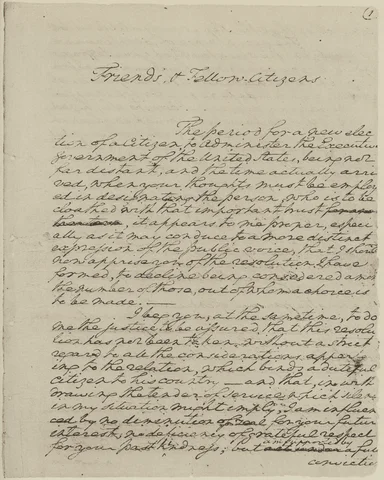 (1
Friends, & Fellow-Citizens
The period for a new elec
tion of a Citizen, to Administer the Executive
Government of the United States, being not
far distant, and the time actually arri
ved, when your thoughts must be employ
ed in designating the person, who is to be
cloathed with that important trust,
it appears to me proper, especi
ally as it may conduce to a more distinct
expression of the public voice, that I should
now apprise you of the resolution I have
formed, to decline being considered among
the number of those, out of whom a choice is
to be made. —
I beg you, at the same time, to do
me the justice to be assured, that this resolu
tion has not been taken, without a strict
regard to all the considerations appertain
ing to the relation, which binds a dutiful
Citizen to his country — and that, in with
drawing the tender of service which silence
in my situation might imply, I am influen
ced by no diminution of zeal for your future
interest, no deficiency of grateful respect
for your past kindness; but am supported by a full
conviction